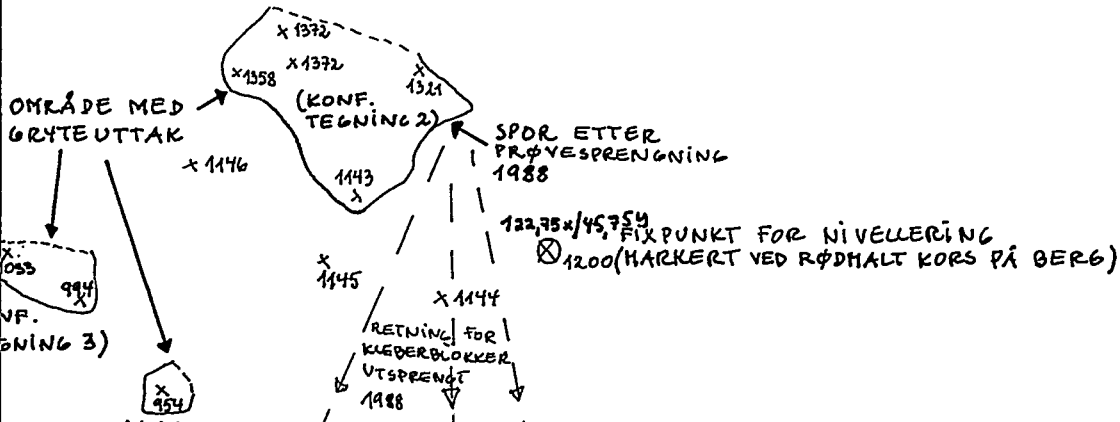 x 1372
x 1372
x 1358
x
1321
(KONF.
TEGNING 2)
OMRÅDE MED
GRYTEUTTAK
SPOR ETTER
PRØVESPRENGNING
1988
x 1146
1143
x
122,75x/45,75y
FIXPUNKT FOR NIVELLERING
1200 (MARKERT VED RØDMALT KORS PÅ BERG)
x
1145
x 1144
x
1053
994
x
GNING 3)
RETNING FOR
KLEBERBLOKKER
UTSPRENGT
1988
x
954